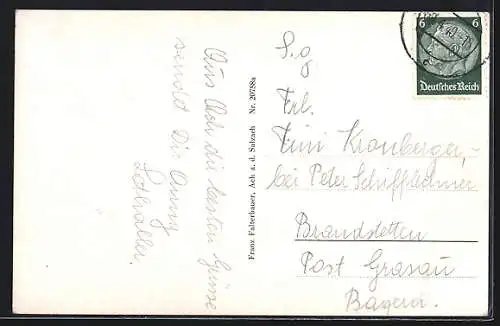 Aus Ach die besten Grüsse
sendet Dir Annny
Lothaller.
Franz Falterbauer, Ach a. d. Salzach Nr. 20798a
S. g
Frl.
Fini Kronberger,-
bei Peter Schifflechner
Brandstetten
Post Grasau
Bayern.
6 6
Deutsches Reich